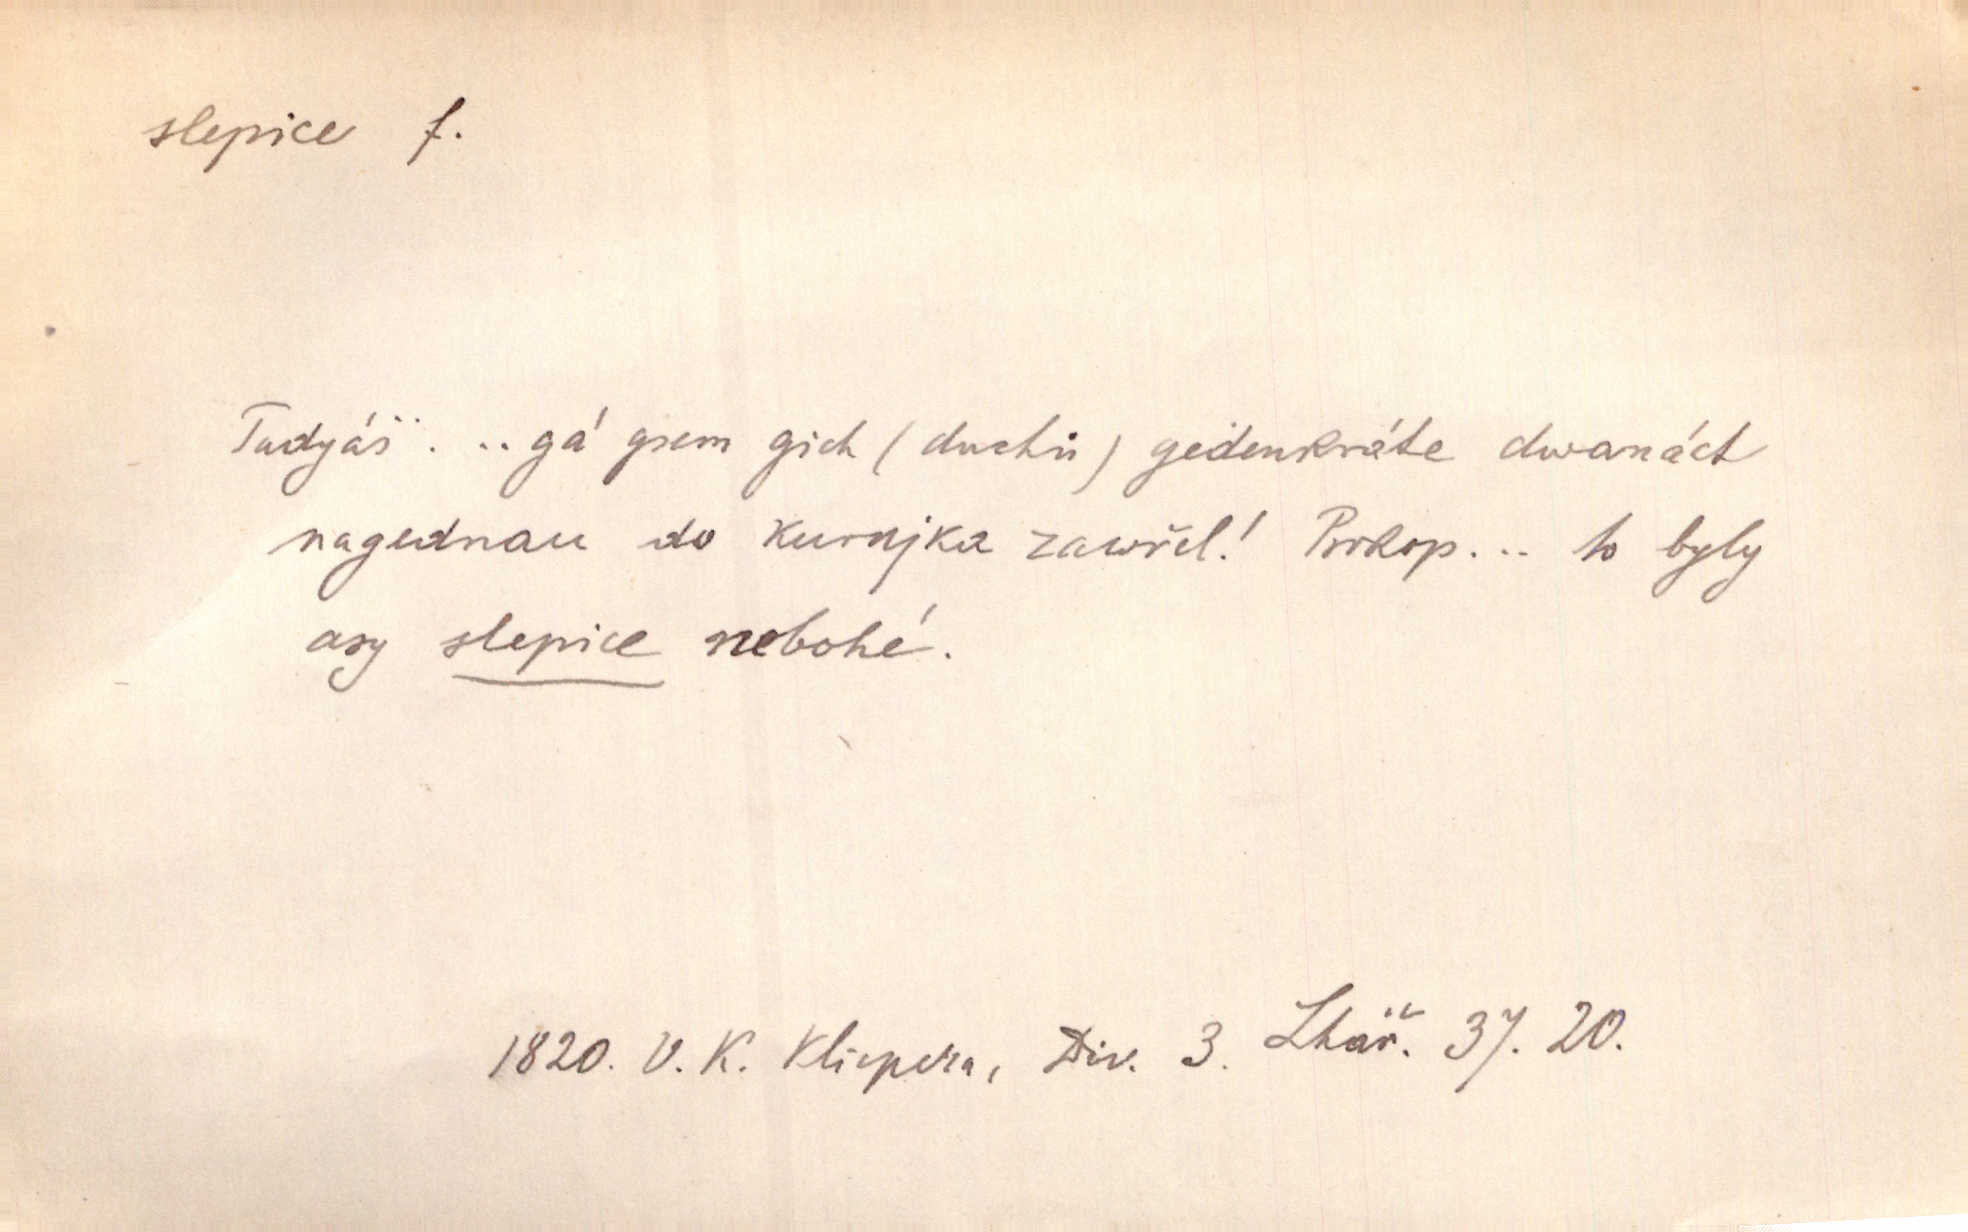 slepice f.
Tadyáš. ... gá gsem gich (duchů) gedenkráte dwanáct
nagednau do kurnjka zawřel! Prokop... to byly
asy slepice nebohé.
1820. V. K. Klicpera, Div. 3. Lhář. 37. 20.